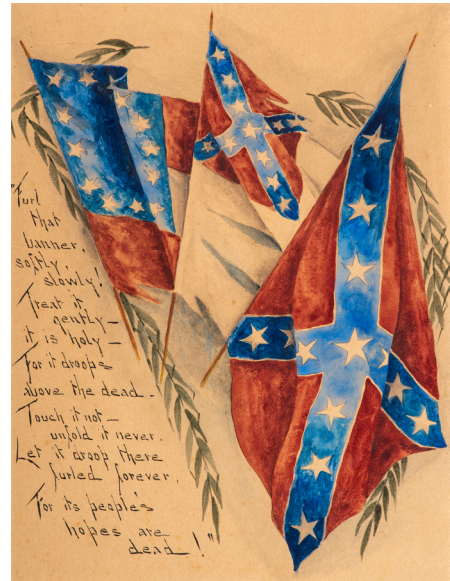 "Furl
that
banner,
softly,
slowly!
Treat it
gently—
it is holy—
For it droops
above the dead.
Touch it not—
unfold it never.
Let it droop there
furled forever,
For its people's
hopes are
dead!"